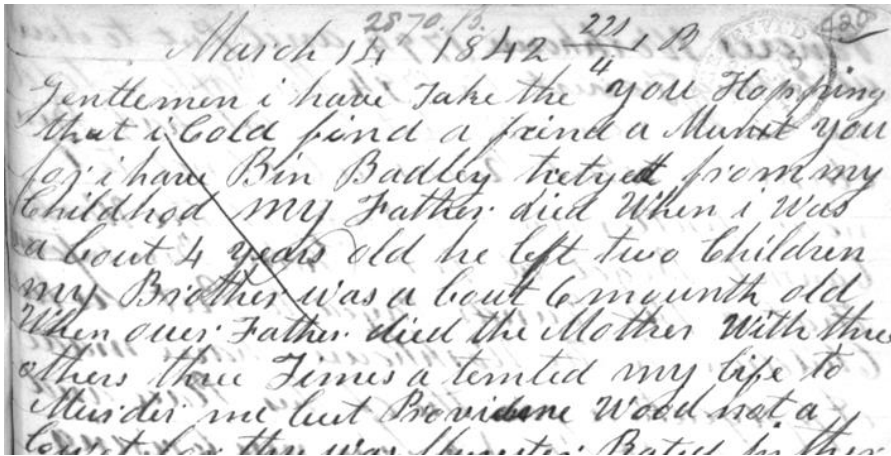 2870.B.
March 14 1842 221/4 B 420
Gentlemen i have Take the you Hopping
that i Cold find a frind a Munt you
for i have Bin Badley tretyed from my
Childhod my Father died When i Was
a bout 4 years old he left two Children
my Brother was a bout 6 mounth old
When ouer Father died the Mother With thre
others three Times a temted my life to
Murder me but Providene Wood not a
for the was Rated